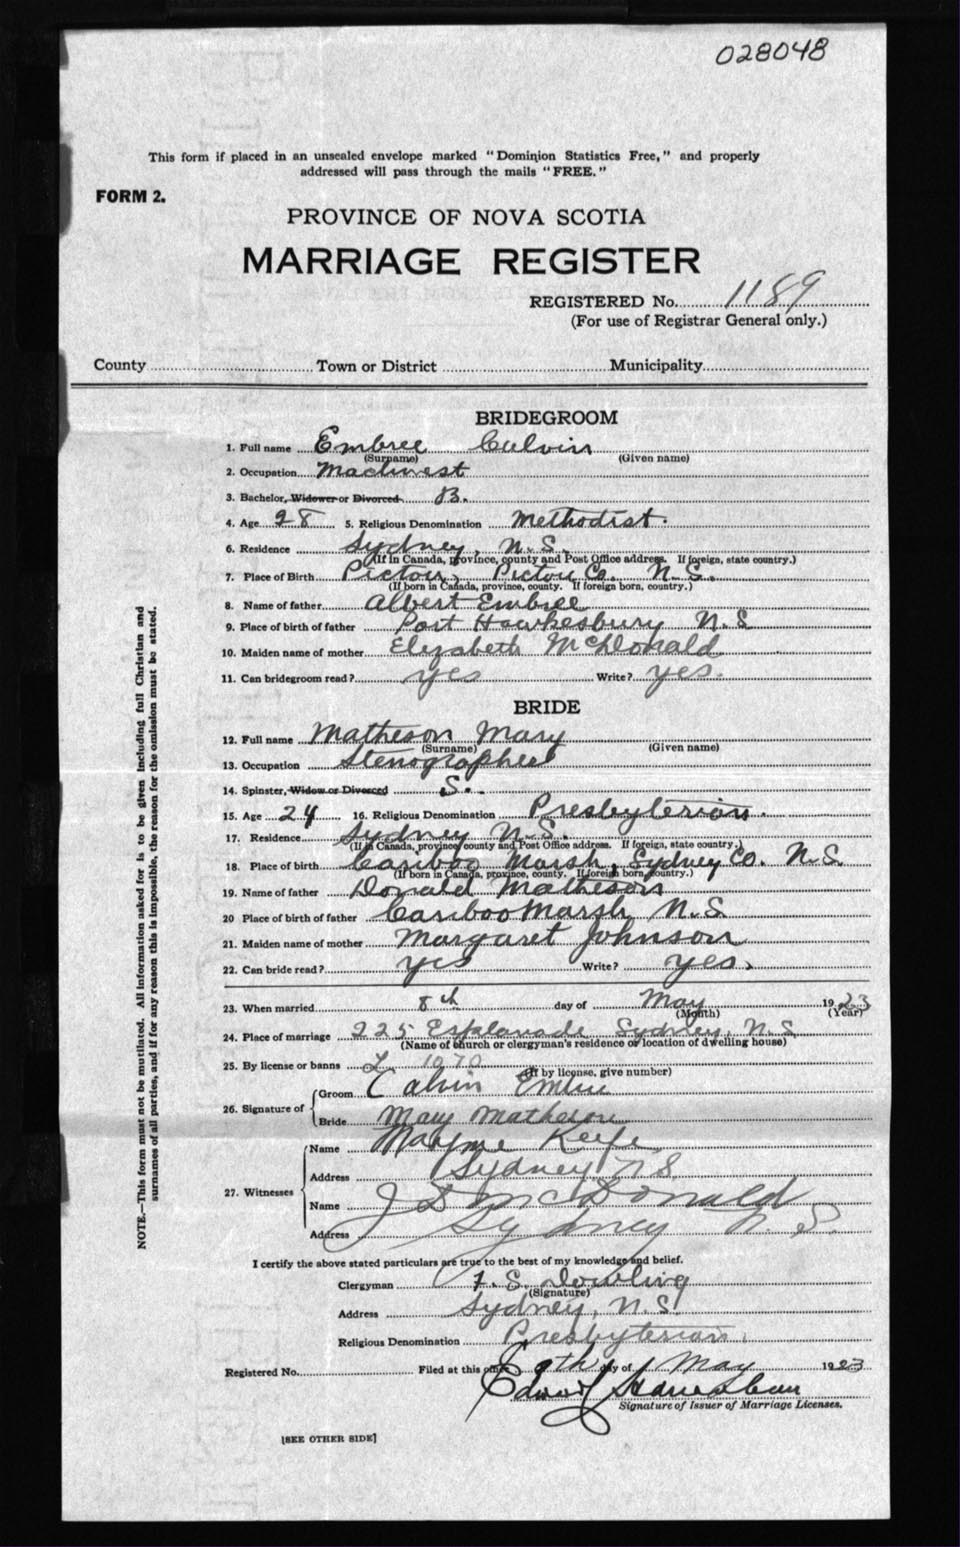 028048
This form if placed in an unsealed envelope marked "Dominion Statistics Free," and properly
addressed will pass through the mails "FREE."
FORM 2.
PROVINCE OF NOVA SCOTIA
MARRIAGE REGISTER
REGISTERED No. 1189
(For use of Registrar General only.)
County Town or District Municipality
BRIDEGROOM
1. Full name Embree Calvin
(Surname) (Given name)
2. Occupation Machinest
3. Bachelor, Widower or Divorced B.
4. Age 28 5. Religious Denomination Methodist.
6. Residence Sydney, N.S.
(If in Canada, province, county and Post Office address. If foreign, state country.)
7. Place of Birth Pictou, Pictou Co. N.S.
(If born in Canada, province, county. If foreign born, country.)
8. Name of father Albert Embree
9. Place of birth of father Port Hawkesbury N.S
10. Maiden name of mother Elizabeth McDonald
11. Can bridegroom read? yes Write? yes.
BRIDE
12. Full name Matheson Mary
(Surname) (Given name)
13. Occupation Stenographer
14. Spinster, Widow or Divorced S.
15. Age 24 16. Religious Denomination Presbyterian.
17. Residence Sydney N.S.
(If in Canada, province, county and Post Office address. If foreign, state country.)
18. Place of birth Cariboo Marsh, Sydney Co. N.S.
(If born in Canada, province, county. If foreign born, country.)
19. Name of father Donald Matheson
20 Place of birth of father Cariboo Marsh N.S
21. Maiden name of mother Margaret Johnson
22. Can bride read? yes Write? yes.
23. When married 8th day of May 1923
(Month) (Year)
24. Place of marriage 225 Esplanade Sydney, N.S
(Name of church or clergyman's residence or location of dwelling house)
25. By license or banns L 1070
(If by license, give number)
26. Signature of Groom Calvin Embree
Bride Mary Matheson
27. Witnesses Name Mayme Keefe
Address Sydney N.S.
Name J S McDonald
Address Sydney N.S.
I certify the above stated particulars are true to the best of my knowledge and belief.
Clergyman F. S. Dowling
(Signature)
Address Sydney, N.S.
Religious Denomination Presbyterian.
Registered No. Filed at this office 9th day of May 1923
Edward
Signature of Issuer of Marriage Licenses.
[SEE OTHER SIDE]
NOTE.—This form must not be mutilated. All information asked for is to be given including full Christian and
surnames of all parties, and if for any reason this is impossible, the reason for the omission must be stated.